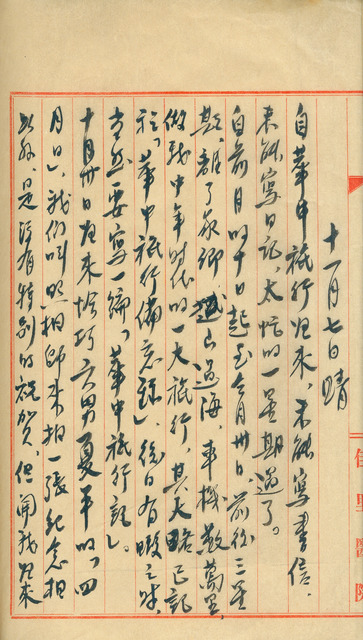 十一月七日 晴
自華中旅行歸來，未能寫書信，
未能寫日記，太忙的一星期過了。
自前月的十日起至今月卅日，前後三星
期，離了家鄉，越山過海，車機數萬里，
做我中年時代的一大旅行，其大略已記
於「華中旅行備忘錄」，後日有暇之時，
當然要寫一編「華中旅行記」。
十月卅日歸來恰巧六男夏平的「四
月日」，我們叫照相師來拍一張紀念相
此外，是沒有特別的祝賀，但聞我歸來
佳里醫院